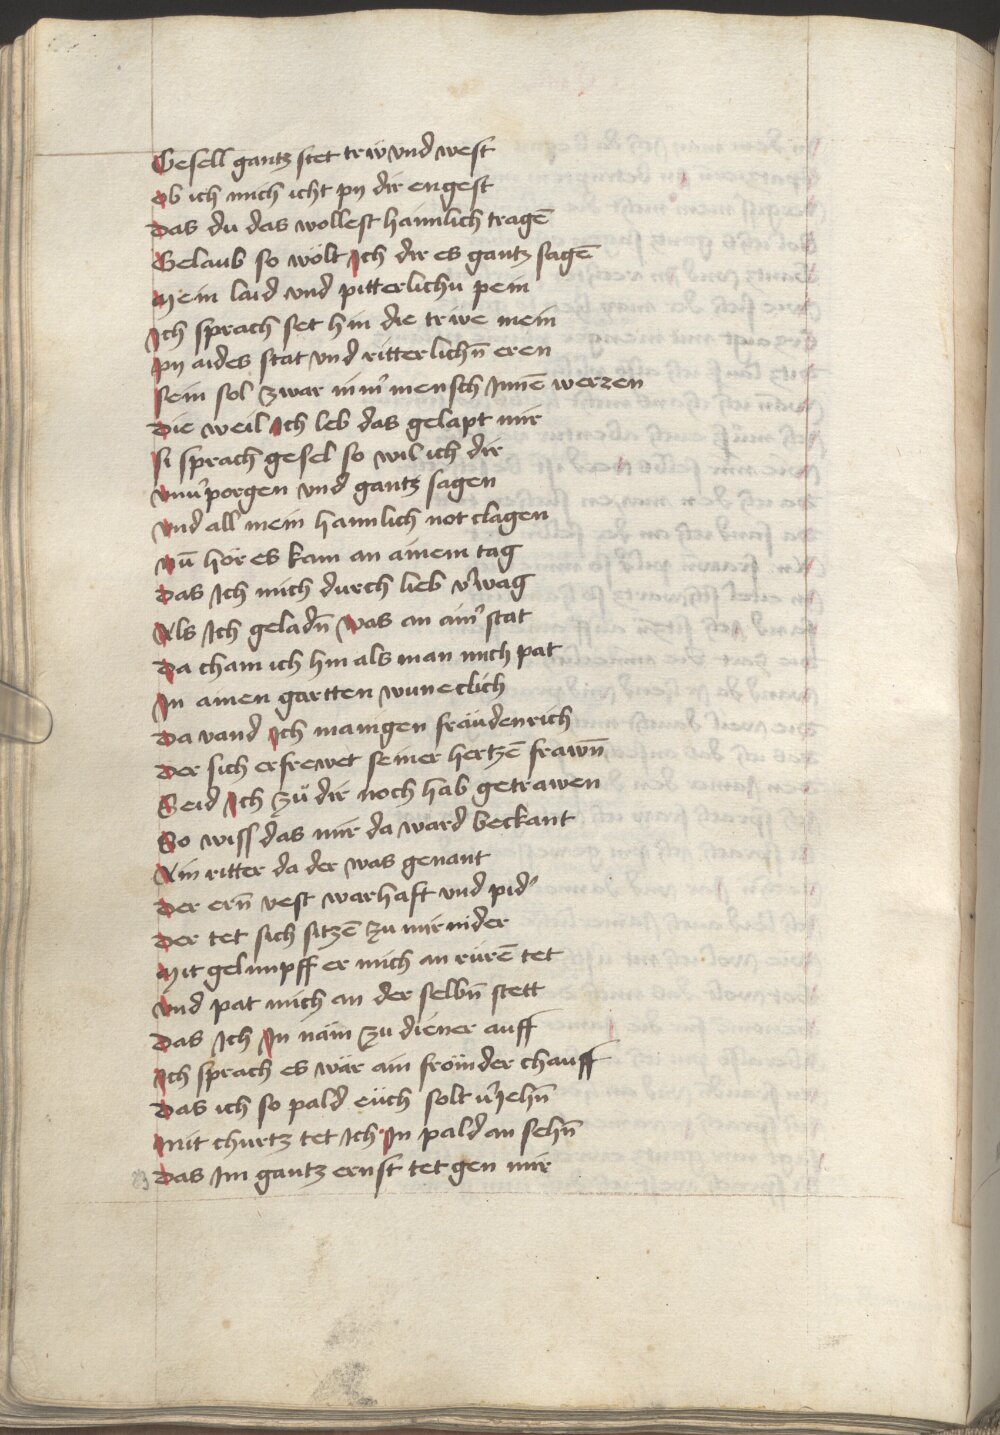 Gesell gantz stet triẅ vnd vest
Ob ich mich icht pŋ dir engest
Das du das wollest haimlich tragē
Gelaub so wölt Ich dir es gantz sagē
Mein laid vnd pitterlichū pein
Ich sprach set hin die triwe mein
pŋ aides stat vnd ritterlichn̄ eren
sein sol zwar nÿm̉ mensch Innē werzen
Die weil Ich leb das gelapt mir
si sprach gesel so wil ich dir
vnu̓porgen vnd gantz sagen
vnd all mein haimlich not clagen
Nū hör es kam an ainem tag
Das Ich mich durch lieb v̓wag
Als Ich geladn̄ was an aim̓ stat
Da cham ich hin als man mich pat
In ainen gartten wuneclich
Da vand Ich mangen fräudenrich
Der sich erfrewet seiner hertzē frawn̄
Seid Ich zü dir noch hab getrawen
So wiss das mir da ward beckant
Ain ritter da der was genant
Der ern̄ vest warhaft vnd pid̓
Der tet sich sitzē zu mir nider
Mit gelimpff er mich an rürē tet
vnd pat mich an der selbn̄ stett
Das Ich In näm zu diener auff
Ich sprach es wär ain frömder chauff
Das ich so pald eüch solt v̓Iehn̄
Mit churtz tet Ich In pald an sehn̄
Das Im gantz ernst tet gen mir